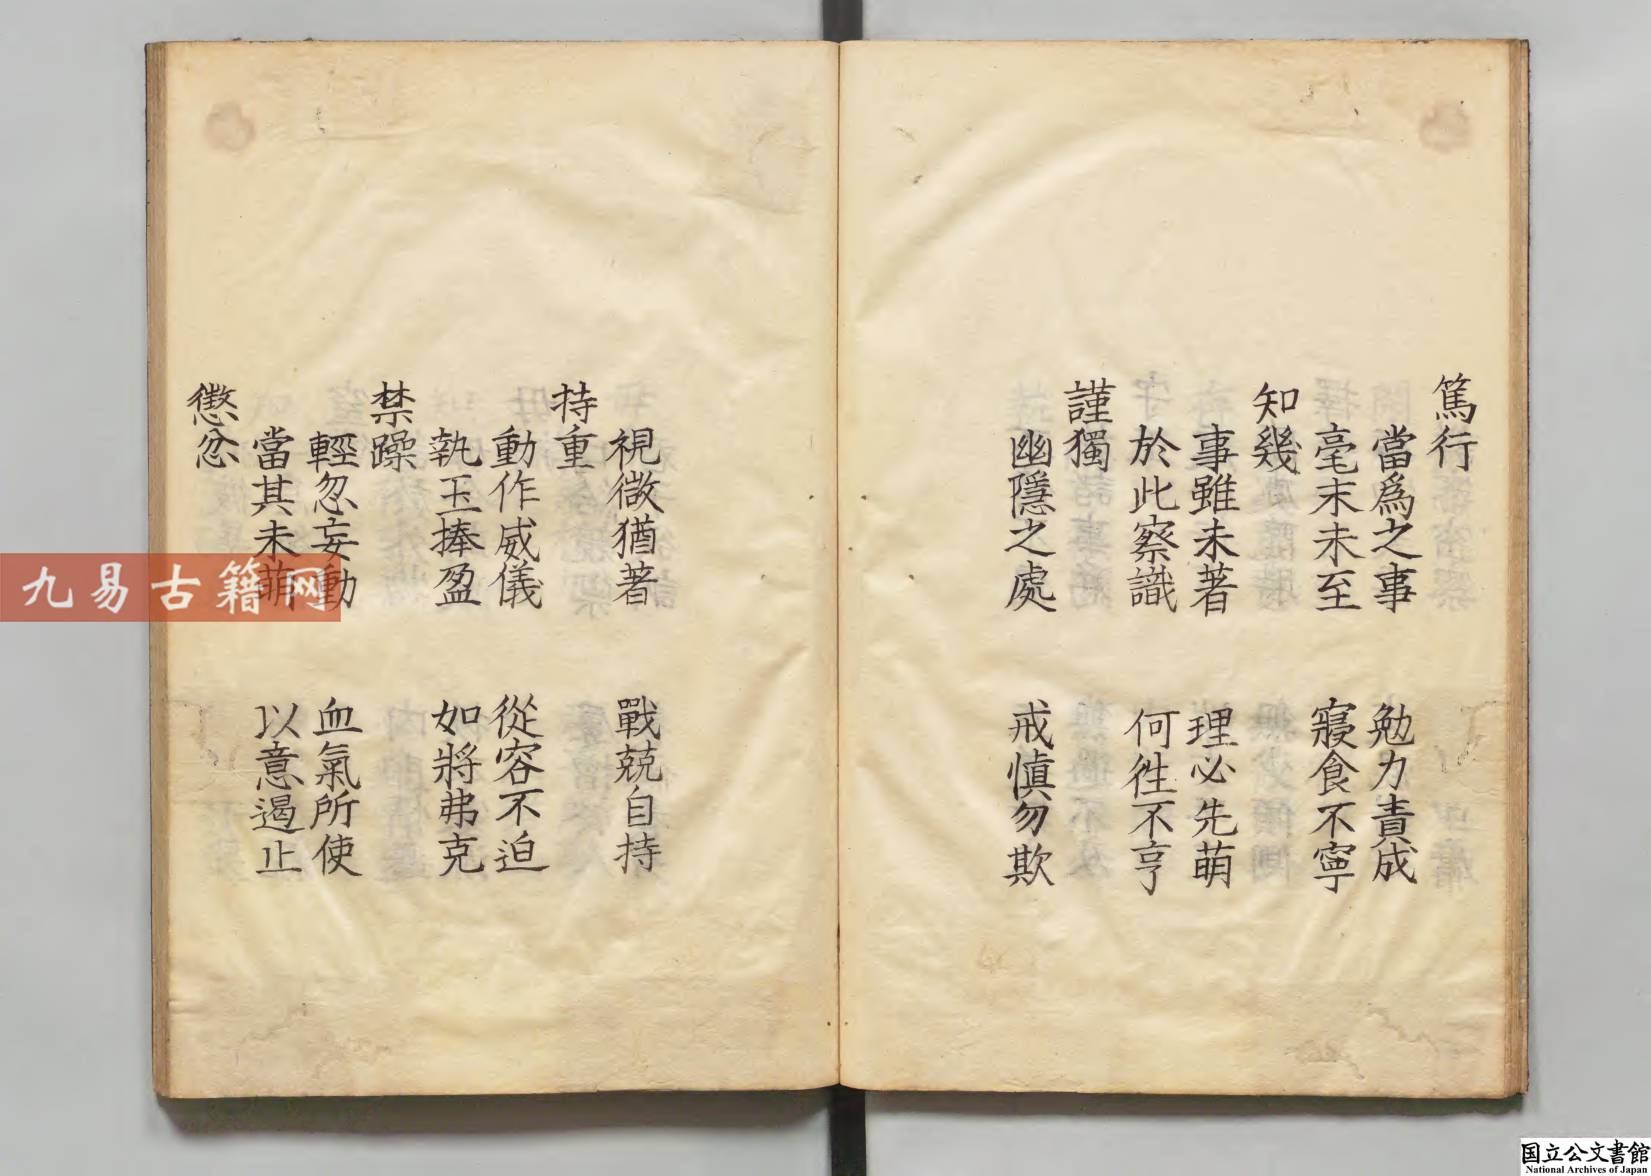 篤行
當爲之事　勉力責成
毫末未至　寢食不寧
知幾
事雖未著　理必先萌
於此察識　何徃不亨
謹獨
幽隱之處　戒愼勿欺
視微猶著　戰兢自持
持重
動作威儀　從容不迫
執玉捧盈　如將弗克
禁躁
輕忽妄動　血氣所使
當其未萌　以意遏止
懲忿
九易古籍网
国立公文書館
National Archives of Japan